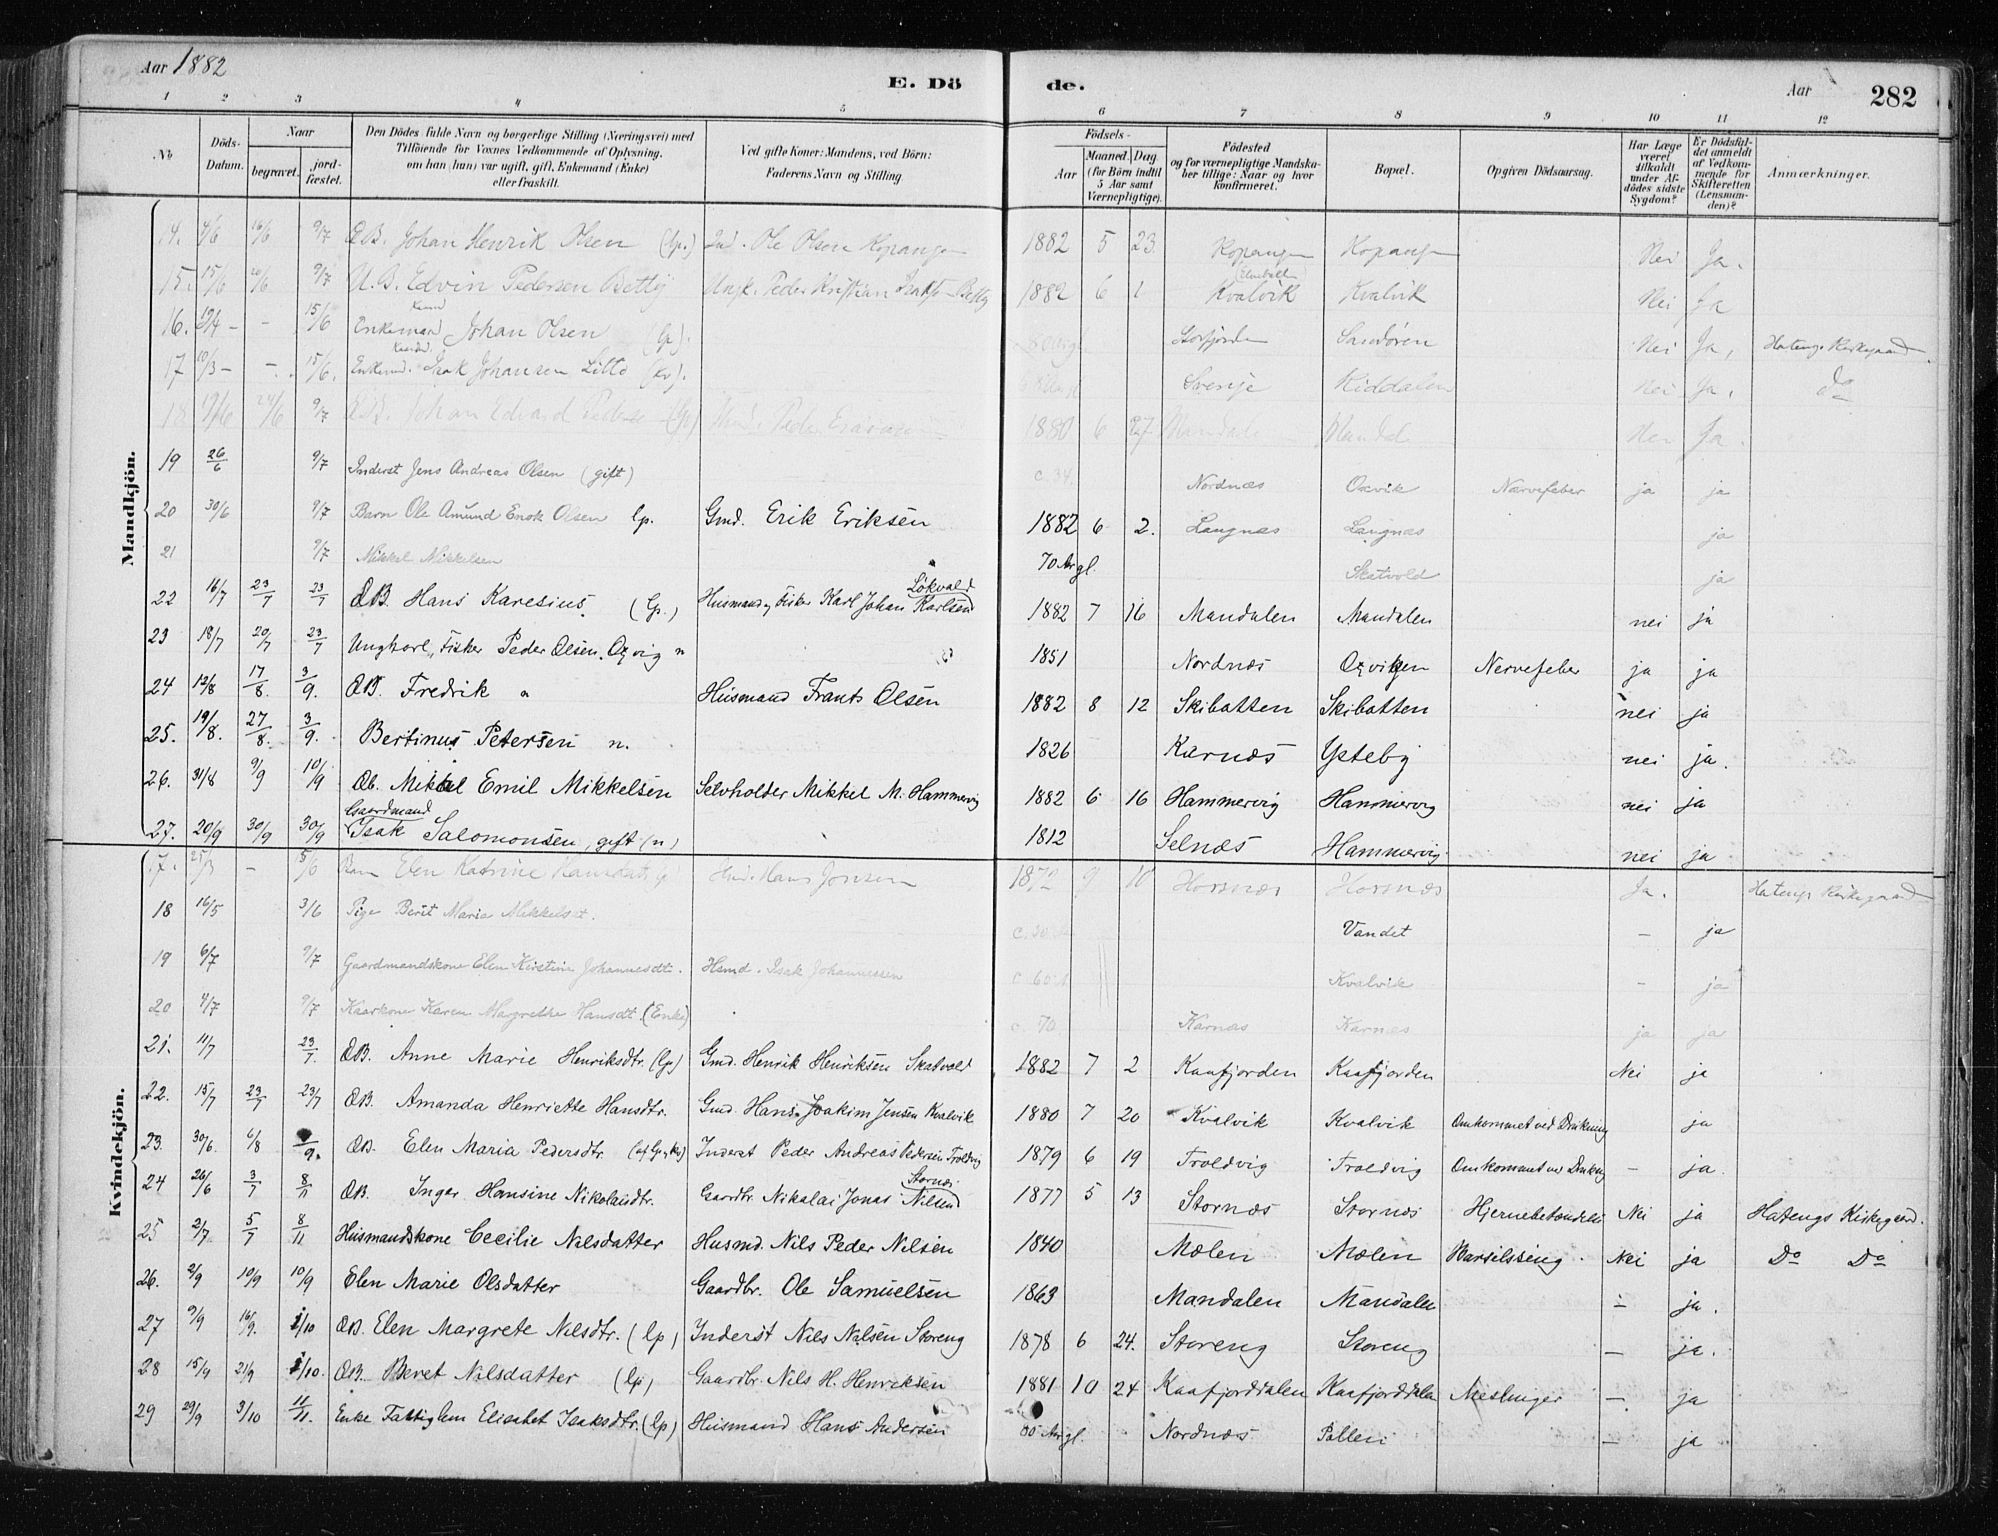 Aar 1882
E. Dö
de.
Aar
282
1 2 3 4 5 6 7 8 9 10 11 12
No
Döds-Datum.
Naar
begravet.
jordfæstet.
Den Dödes fulde Navn og borgerlige Stilling (Næringsvei) med Tilföiende for Voxnes Vedkommende af Oplysning, om han (hun) var ugift, gift, Enkemand (Enke) eller fraskilt.
Ved gifte Koner: Mandens, ved Börn: Faderens Navn og Stilling.
Födsels-
Aar
Maaned. Dag.
(for Börn indtil 5 Aar samt Værnepligtige).
Födested og for værnepligtige Mandskaber tillige: Naar og hvor konfirmeret.
Bopæl.
Opgiven Dödsaarsag.
Har Læge været tilkaldt under Afdödes sidste Sygdom?
Er Dödsfaldet anmeldt af Vedkommende for Skifteretten (Lensmanden)?
Anmærkninger.
Mandkjön.
14. 4/6 16/6 9/7 ÆB. Johan Henrik Olsen (lp.) Ole Olsen Kopangen 1882 5 23 Kopangen Kopangen Nei Ja.
15. 15/6 20/6 9/7 U.B. Edvin Pedersen Betty Ungk. Peder Kristian Betty 1882 6 1 Kvalvik Kvalvik Nei Ja
16. - - 15/6 Enkemand Johan Olsen (lp). Storfjorden Sandøren Nei Ja, Hatengs Kirkegaard.
17 10/3 - - 15/6. Enkemd. Isak Johansen Litto (Kv). Sverije Kiddalen Nei Ja, do
18 24/6 9/7 ÆB. Johan Edvard (lp) Peder 1880 6 27 Nei Ja.
19 26/6 9/7 Inderst Jens Andreas Olsen (gift) c. 34 Nordnæs Oxvik Nervefeber ja ja
20 30/6 9/7 Barn Ole Amund Enok Olsen lp. Gmd. Erik Eriksen 1882 6 2. Langnæs Langnæs ja
21 9/7 Mikkel Mikkelsen 70 Aar gl. Skatvold ja
22 16/7 23/7 23/7 ÆB. Hans Karesius (lp.) Husmand og Fisker Karl Johan Karlsen Løkvold 1882 7 16 Mandalen Mandalen nei ja
23 18/7 20/7 23/7 Ungkarl, Fisker Peder Olsen Oxvig n 1851 Nordnæs Oxvigen Nervefeber ja ja
24 12/8 17/8. 3/9. ÆB. Fredrik n Husmand Frants Olsen 1882 8 12 Skibotten Skibotten nei ja
25. 19/8. 27/8. 3/9. Bertinus Petersen n. 1826 Karnæs Ysteby nei ja.
26. 31/8 9/9 10/9 Æb. Mikal Emil Mikkelsen Selvholder Mikkel M. Hammervig 1882 6 16 Hammervig Hammervig nei ja
27. 20/9 30/9 30/9 Gaardmand Isak Salomonsen, gift (n) 1812 Selnæs Hammervig nei ja
Kvindekjön.
17. - 5/6 Barn Elen Katrine Hansdat. Hans Jonsen 1872 9 10 Horsnæs Horsnæs Ja. Hatengs Kirkegaard
18 16/5 3/6 Pige Berit Maria Mikkelsdt. Vandet - ja
19 6/7 9/7 Gaardmandskone Elen Kirstine Johannesdt. Hsmd. Isak Johannessen c 60 Kvalvik - ja
20 4/7 9/7 Kaarkone Karen Margrethe Hansdt (Enke) c. 70 Karnæs Karnæs ja ja
21. 11/7 23/7. ÆB. Anne Marie Henriksdtr. (lp) Gmd. Henrik Henriksen Skatvold 1882 7 2 Kaafjorden Kaafjorden Nei ja
22. 15/7 23/7 23/7 ÆB. Amanda Henriette Hansdtr. Gmd. Hans Joakim Jensen Kvalvik 1880 7 20 Kvalvik Kvalvik Omkommet ved Drukning ja
23. 30/6. 6/8 /9. ÆB. Elen Maria Pedersdtr Inderst Peder Andreas Pedersen Troldvig 1879 6 19 Troldvig Troldvig Omkommet ved Drukng - ja.
24 26/6 3/7 8/11 ÆB. Inger Hansine Nikolaidtr. Gaardbr. Nikolai Jonas Nilsen Stornæs 1877 5 13 Stornæs Stornæs Hjernebetændelse Nei ja Hatengs Kirkegaard.
25 2/7 5/7 8/11 Husmandskone Cecilie Nilsdatter Husmd. Nils Peder Nilsen 1840 Mælen Mælen Barselsseng. Nei ja Do Do
26. 2/9 10/9 10/9 Elen Marie Olsdatter Gaardbr. Ole Samuelsen 1863 Mandalen Mandalen - ja.
27 9/9 16/9. 1/10 ÆB. Elen Margrete Nilsdtr. (lp) Inderst Nils Nilsen Storeng 1878 6 24. Storeng Storeng - ja.
28 15/9 21/9 1/10. ÆB. Beret Nilsdatter (lp) Gaardbr. Nils H. Henriksen 1881 10 24 Kaafjorddalen Kaafjorddalen Meslinger - ja
29 29/9 3/10 11/11. Enke Fattiglem Elisabet Isaksdtr. (lp) Husmand Hans Andersen Aar gl. Nordnæs Pollen - ja